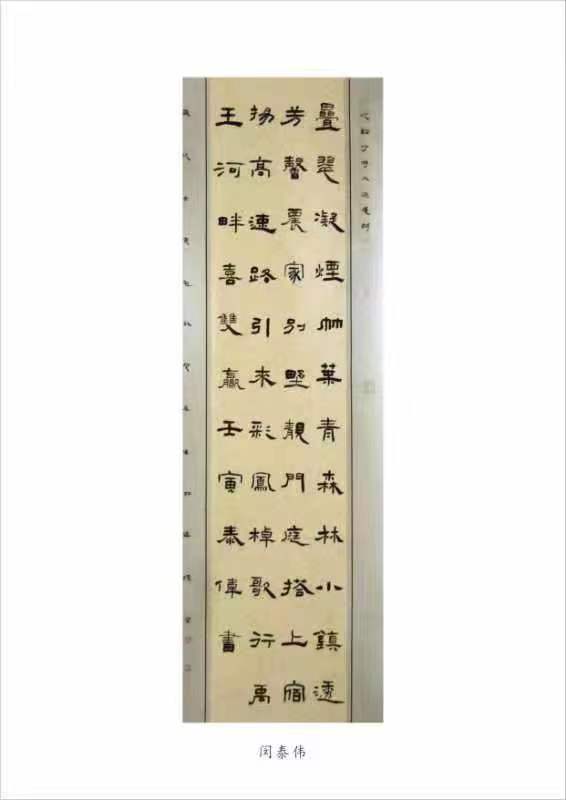 疊翠凝煙竹葉青森林小鎮透
芳馨農家別墅靚門庭搭上宿
扬高速路引来彩鳳棹歌行禹
王河畔喜雙贏壬寅泰偉書
闵泰伟